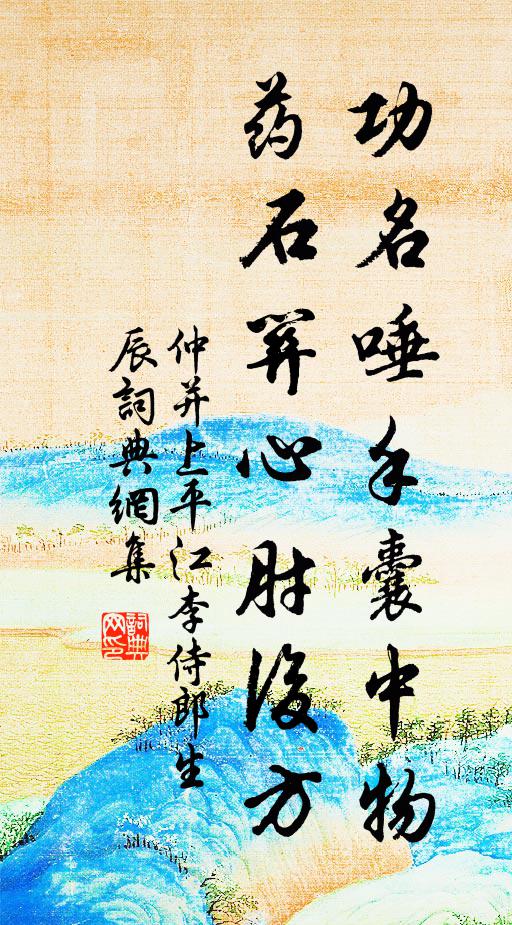 功名唾手囊中物
药石關心肘後方
仲并上平江李侍郎生
辰詞典網集
詞典网印